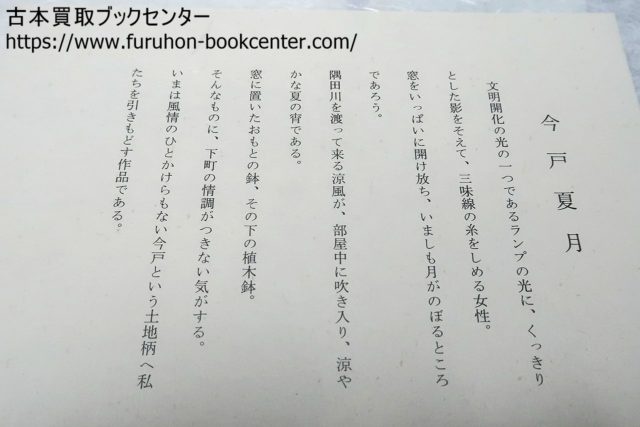 古本買取ブックセンター
https://www.furuhon-bookcenter.com/
今戸夏月
文明開化の光の一つであるランプの光に、くっきり
とした影をそえて、三味線の糸をしめる女性。
窓をいっぱいに開け放ち、いましも月がのぼるところ
であろう。
隅田川を渡って来る涼風が、部屋中に吹き入り、涼や
かな夏の宵である。
窓に置いたおもとの鉢、その下の植木鉢。
そんなものに、下町の情調がつきない気がする。
いまは風情のひとかけらもない今戸という土地柄へ私
たちを引きもどす作品である。